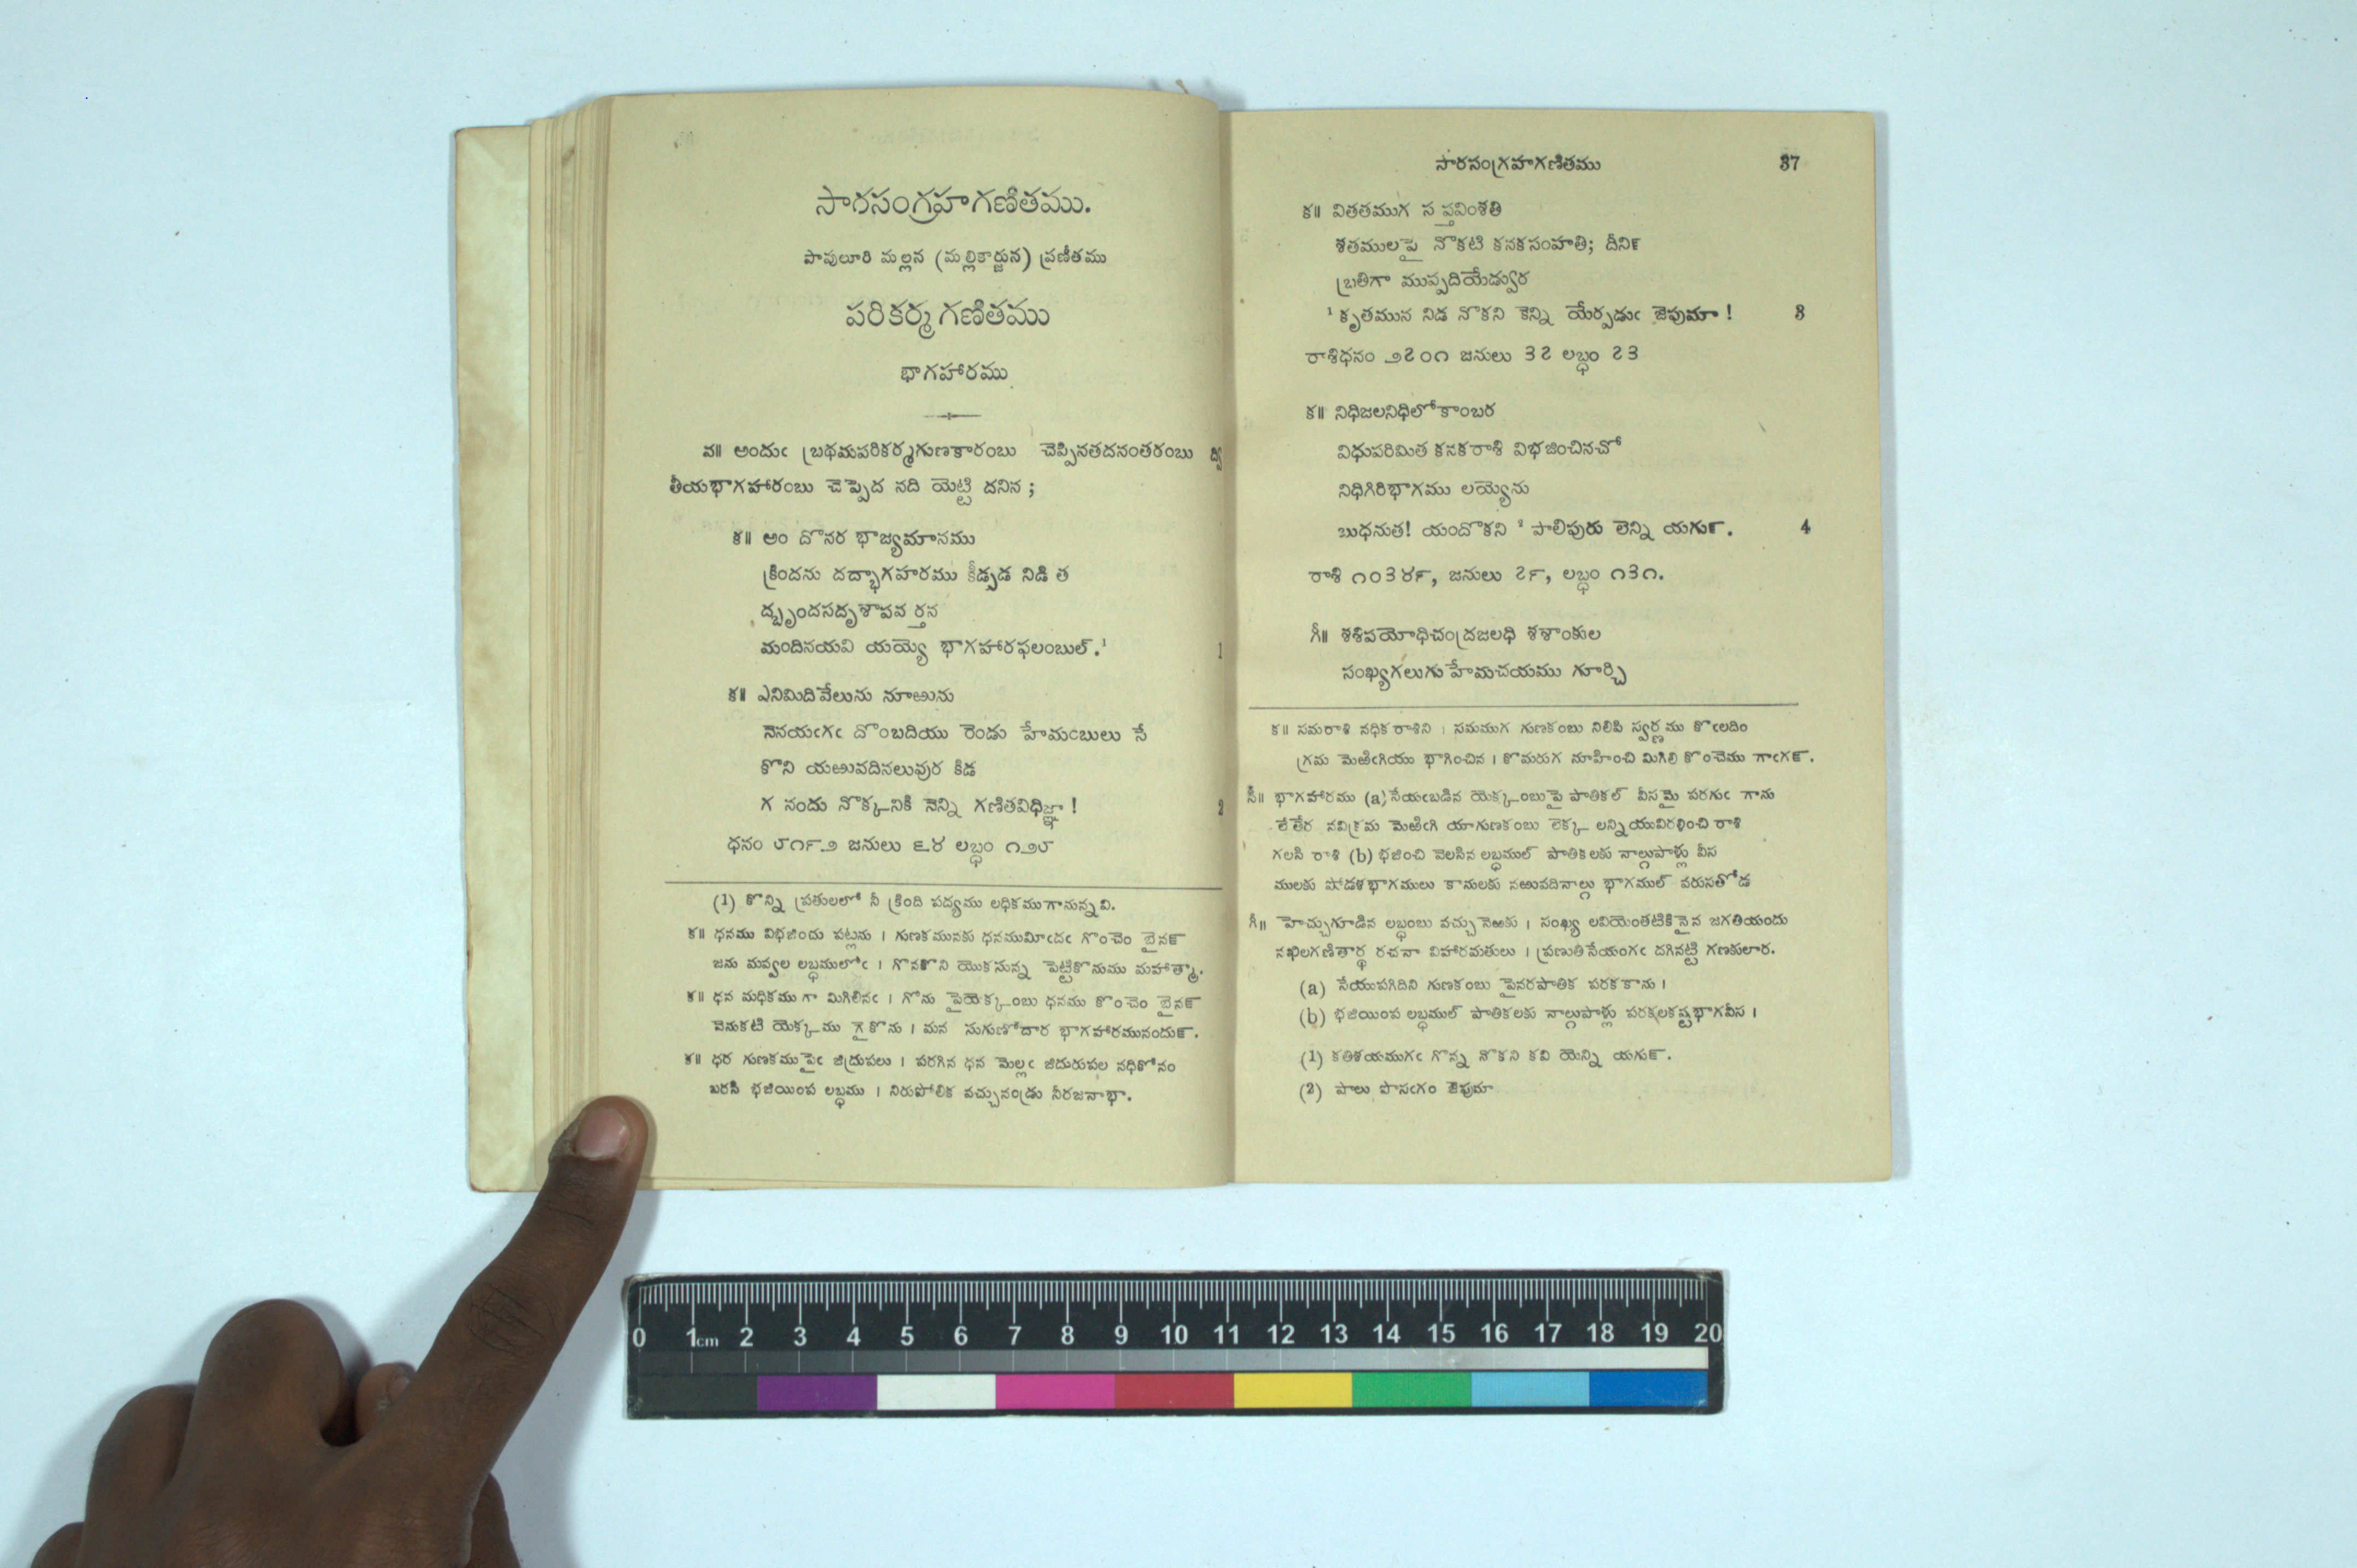 సారసంగ్రహగణితము.
పావులూరి మల్లన (మల్లికార్జున) ప్రణీతము
పరికర్మగణితము
భాగహారము
వ॥ అందుఁ బ్రథమపరికర్మగుణకారంబు చెప్పినతదనంతరంబు ద్వి
తీయభాగహారంబు చెప్పెద నది యెట్టి దనిన ;
క॥ అం దొనర భాజ్యమానము
క్రిందను దద్భాగహరము కీడ్పడ నిడి త
ద్బృందసదృశాపవర్తన
మందినయవి యయ్యె భాగహారఫలంబుల్.¹ 1
క॥ ఎనిమిదివేలును నూఱును
నెనయఁగఁ దొంబదియు రెండు హేమంబులు సే
కొని యఱువదినలువుర కిడ
గ నందు నొక్కనికి నెన్ని గణితవిధిజ్ఞా ! 2
ధనం ౮౧౯౨ జనులు ౬౪ లబ్ధం ౧౨౮
(1) కొన్ని ప్రతులలో నీ క్రింది పద్యము లధికముగానున్నవి.
క॥ ధనము విభజిందు పట్లను । గుణకమునకు ధనముమీఁదఁ గొంచెం బైన౯
జను మవ్వల లబ్ధములోఁ । గొనకొని యొకసున్న పెట్టికొనుము మహాత్మా.
క॥ ధన మధికము గా మిగిలినఁ । గోను పైయెక్కంబు ధనము కొంచెం బైన౯
వెనుకటి యెక్కము గైకొను । మన సుగుణోదార భాగహారమునందు౯.
క॥ ధర గుణకముపైఁ జిద్రుపలు । పరగిన ధన మెల్లఁ జిదురుపల నధికోనం
బరసి భజియింప లబ్ధము । నిరుపోలిక వచ్చునండ్రు నీరజనాభా.
సారసంగ్రహగణితము 37
క॥ వితతముగ సప్తవింశతి
శతములపై నొకటి కనకసంహతి; దీని౯
బ్రతిగా ముప్పదియేడ్వుర
¹ కృతమున నిడ నొకని కెన్ని యేర్పడుఁ జెపుమా ! 3
రాశిధనం ౨౭౦౧ జనులు ౩౭ లబ్ధం ౭౩
క॥ నిధిజలనిధిలోకాంబర
విధుపరిమిత కనకరాశి విభజించినచో
నిధిగిరిభాగము లయ్యెను
బుధనుత! యందొకని ² పాలిపురు లెన్ని యగు౯. 4
రాశి ౧౦౩౪౯, జనులు ౭౯, లబ్ధం ౧౩౧.
గీ॥ శశిపయోధిచంద్రజలధి శశాంకుల
సంఖ్యగలుగు హేమచయము గూర్చి
క॥ సమరాశి నధిక రాశిని । సమముగ గుణకంబు నిలిపి స్వర్ణము కొఁలదిం
గ్రమ మెఱిఁగియు భాగించిన । కొమరుగ నూహించి మిగిలి కొంచెము గాఁగ౯.
సీ॥ భాగహారము (a) సేయఁబడిన యెక్కంబుపై పాతికల్ వీసమై పరగుఁ గాను
లేతేర నవిక్రమ మెఱిఁగి యాగుణకంబు లెక్క లన్నియువిరళించి రాశి
గలసి రాశి (b) భజించి వెలసిన లబ్ధముల్ పాతికలకు నాల్గుపాళ్లు వీస
ములకు షోడశభాగములు కానులకు నఱువదినాల్గు భాగముల్ వరుసతోడ
గీ॥ హెచ్చుగూడిన లబ్ధంబు వచ్చు నెఱకు । సంఖ్య లవియెంతటికినైన జగతియందు
నఖిలగణితార్థ రచనా విహారమతులు । ప్రణుతిసేయంగఁ దగినట్టి గణకులార.
(a) సేయుపగిదిని గుణకంబు పైనరపాతిక పరకకాను ।
(b) భజియింప లబ్ధముల్ పాతికలకు నాల్గుపాళ్లు పరకలకష్టభాగవీస ।
(1) కతిశయముగఁ గొన్న నొకని కవి యెన్ని యగు౯.
(2) పాలు పొసఁగం జెపుమా
0 1cm 2 3 4 5 6 7 8 9 10 11 12 13 14 15 16 17 18 19 20